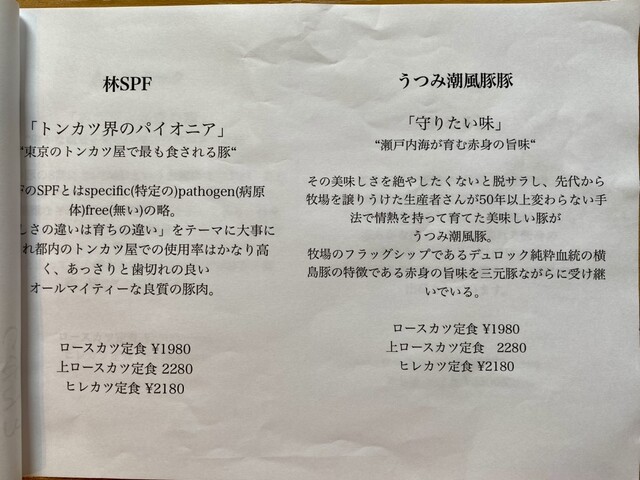 林SPF
「トンカツ界のパイオニア」
“東京のトンカツ屋で最も食される豚“
のSPFとはspecific(特定の)pathogen(病原
体)free(無い)の略。
しさの違いは育ちの違い」をテーマに大事に
れ都内のトンカツ屋での使用率はかなり高
く、あっさりと歯切れの良い
オールマイティーな良質の豚肉。
ロースカツ定食 ¥1980
上ロースカツ定食 2280
ヒレカツ定食 ¥2180
うつみ潮風豚豚
「守りたい味」
“瀬戸内海が育む赤身の旨味“
その美味しさを絶やしたくないと脱サラし、先代から
牧場を譲りうけた生産者さんが50年以上変わらない手
法で情熱を持って育てた美味しい豚が
うつみ潮風豚。
牧場のフラッグシップであるデュロック純粋血統の横
島豚の特徴である赤身の旨味を三元豚ながらに受け継
いでいる。
ロースカツ定食 ¥1980
上ロースカツ定食　2280
ヒレカツ定食 ¥2180